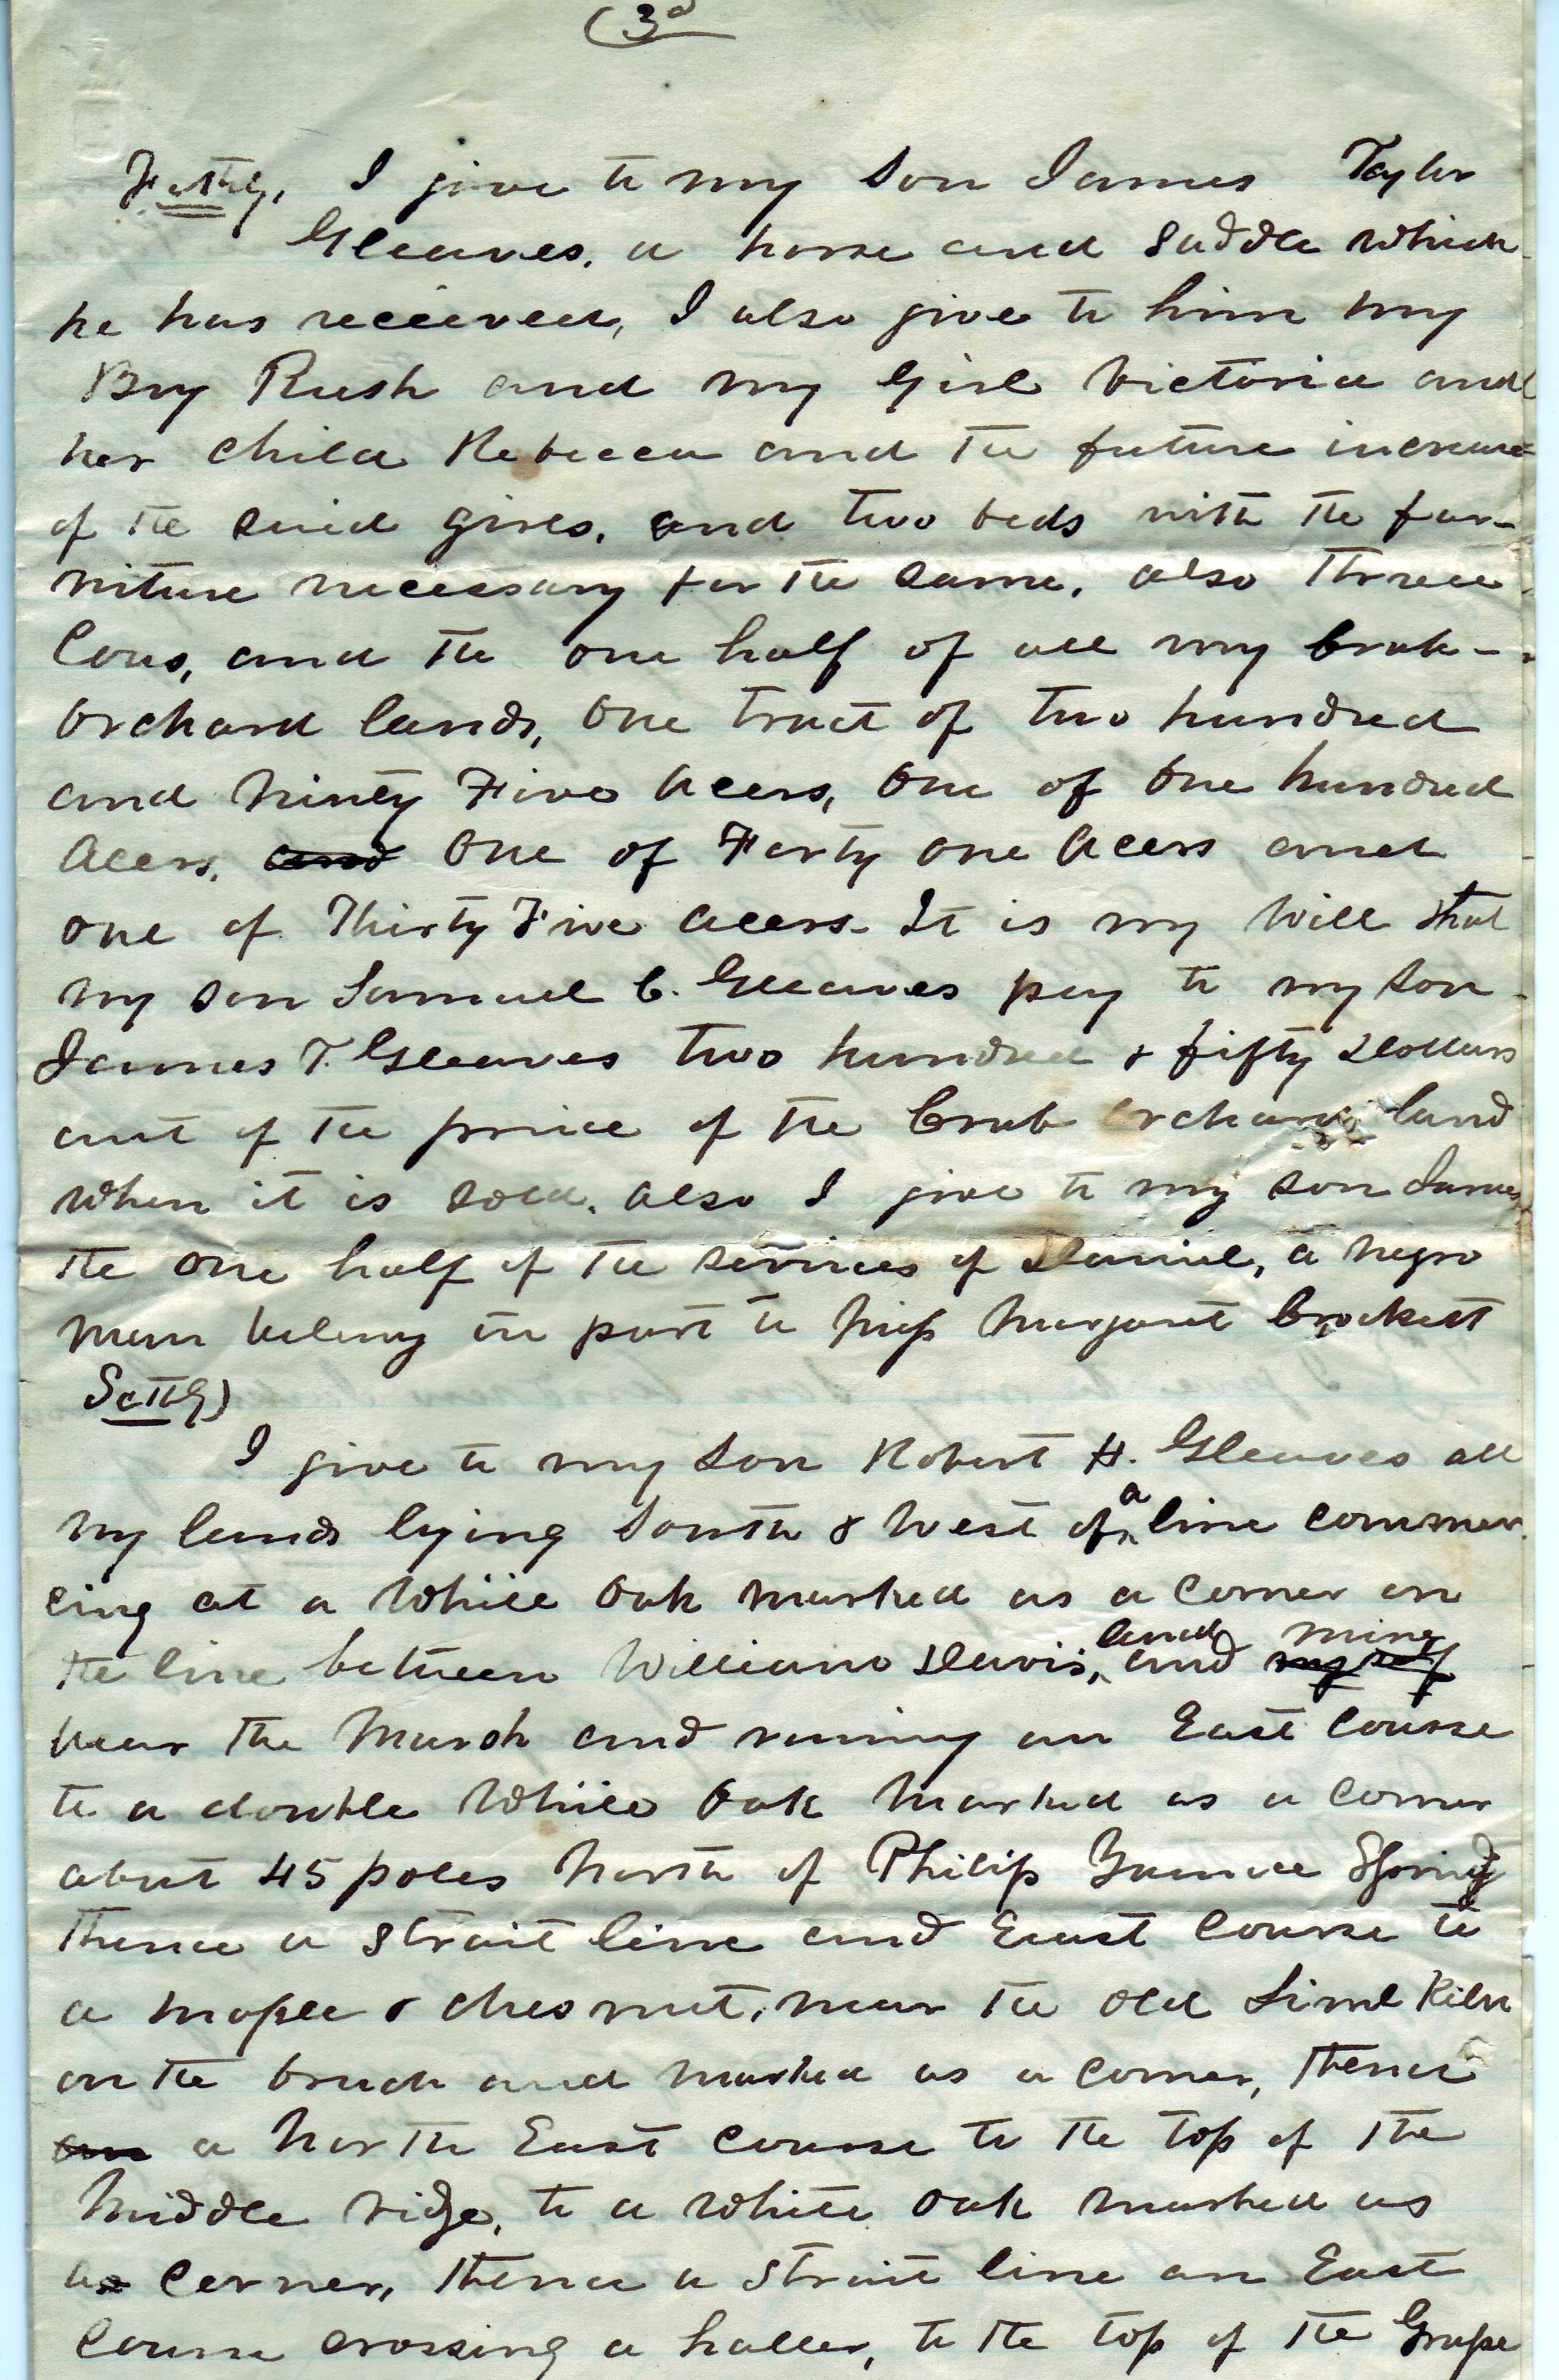 (3d
Fifthly, I give to my Son James Taylor
Gleaves, a horse and Saddle which
he has receieved, I also give to him my
Boy Rush and my Girl Victoria and
her child Rebecca and the future increase
of the said girls, and two beds with the fur-
niture necessary for the same, also three
Cows, and the one half of all my Crab-
Orchard lands, One tract of two hundred
and Ninety Five Acers, One of One hundred
Acers, and One of Forty one Acers and
one of Thirty Five Acers. It is my Will that
my son Samuel C. Gleaves pay to my Son
James T. Gleaves two hundred & fifty Dollars
out of the price of the Crab Orchard land
when it is sold. Also I give to my son James
the one half of the services of Daniel, a negro
man belong in part to Miss Margaret Crockett
I give to my Son Robert H. Gleaves all
my lands lying South & West of a line commen
cing at a White Oak marked as a corner on
the line between William Davis, land and myself mine
near the Marsh and runing an East Course
to a double White Oak Marked as a Corner
about 45 poles North of Philip Spring
thence a Strait line and East Course to
a Maple & chesnut, near the old Lime Kiln
on the branch and marked as a corner, thence
an a North East Course to the top of the
Middle ridge, to a White oak marked as
as Corner, thence a strait line an East
Course crossing a holler, to the top of the Grape